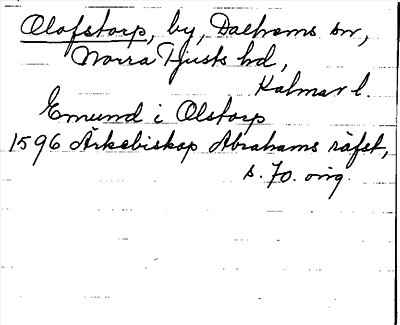 Olofstorp, by, Dalhems sn,
Norra Tjusts hd,
Kalmar l.
Emund i Olstorp
1596 Ärkebiskop Abrahams räfst,
s. 70. orig.